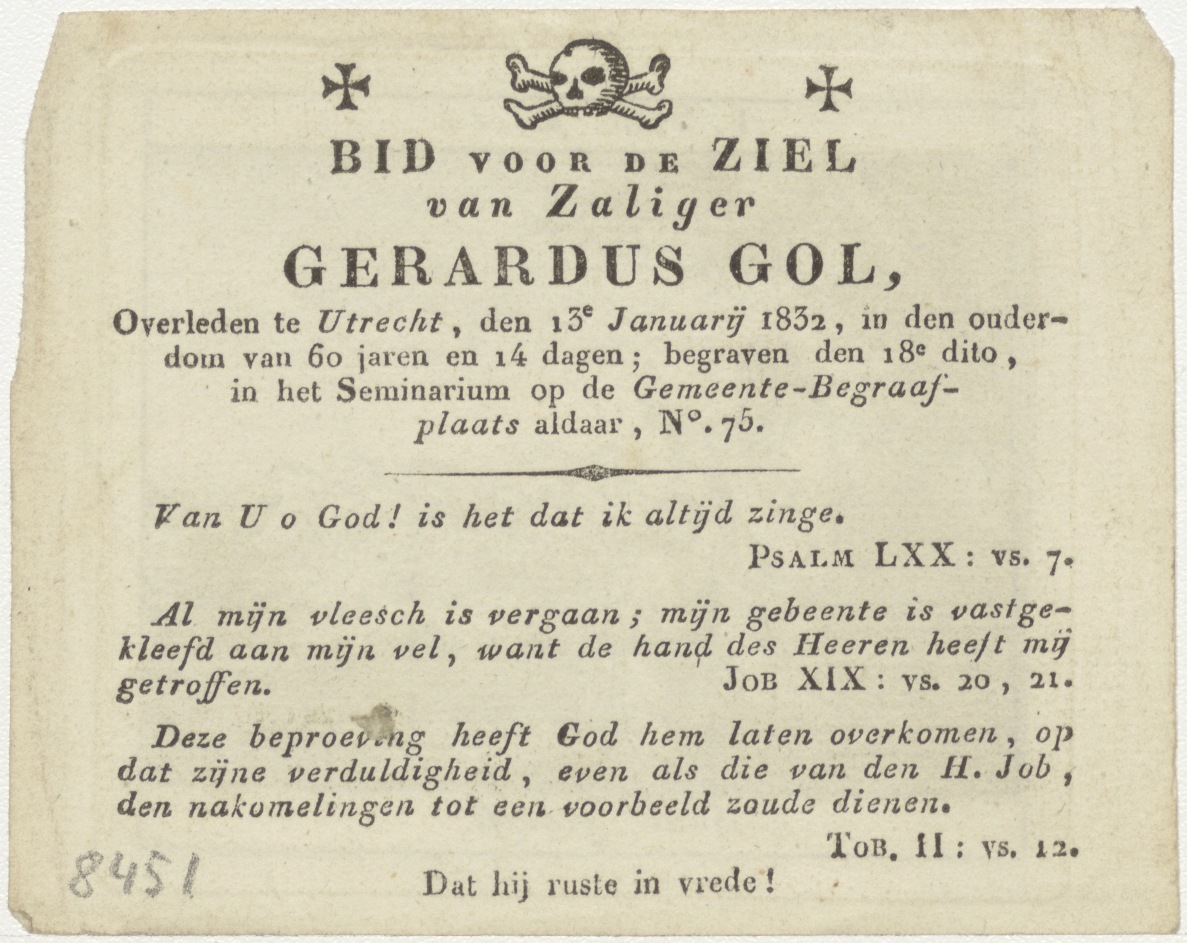 BID VOOR DE ZIEL
van Zaliger
GERARDUS GOL,
Overleden te Utrecht, den 13e Januarij 1832, in den ouder-
dom van 60 jaren en 14 dagen; begraven den 18e dito,
in het Seminarium op de Gemeente-Begraaf-
plaats aldaar, No. 75.
Van U o God! is het dat ik altijd zinge.
PSALM LXX: vs. 7.
Al mijn vleesch is vergaan; mijn gebeente is vastge-
kleefd aan mijn vel, want de hand des Heeren heeft mij
getroffen. JOB XIX: vs. 20, 21.
Deze beproeving heeft God hem laten overkomen, op
dat zijne verduldigheid, even als die van den H. Job,
den nakomelingen tot een voorbeeld zoude dienen.
TOB. II: vs. 12.
Dat hij ruste in vrede!
8451